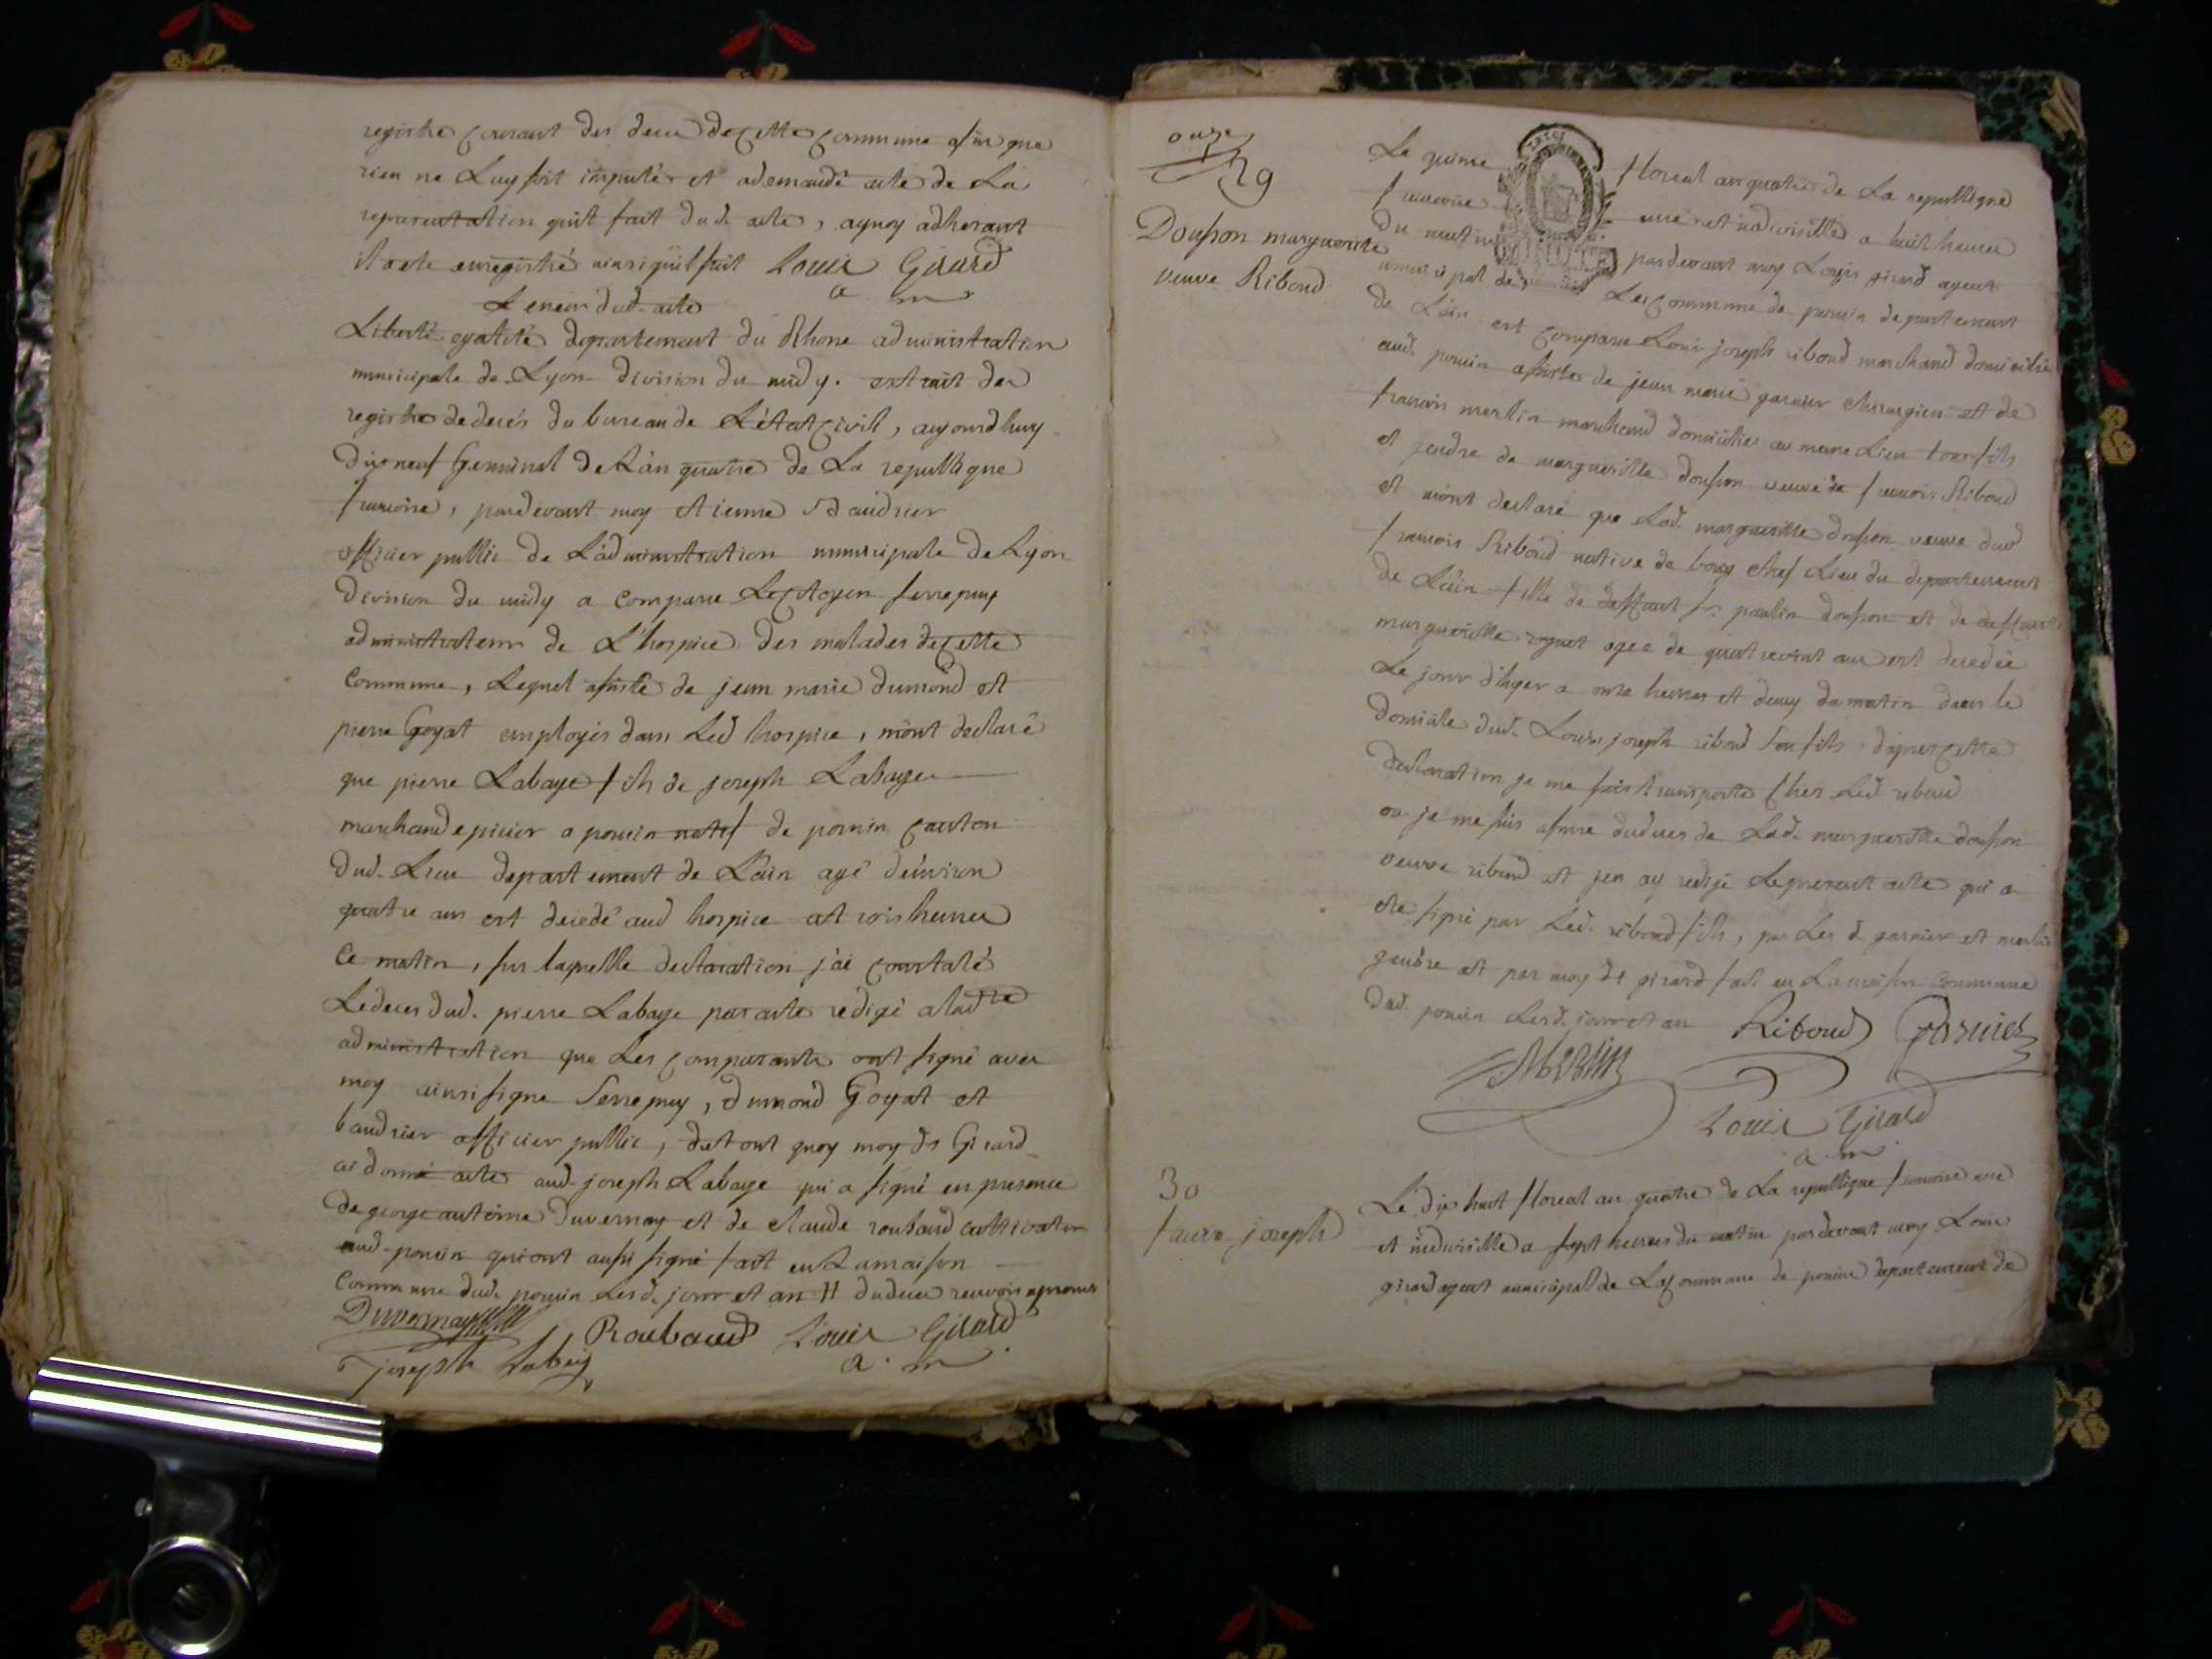 registre courant des deces de cette commune afin que
rien ne Luy soit imputé et a demandé acte de La
representation quil fait dud. acte, aquoy adherant
il a ete enregistré ainsi quil suit Louis Girard
a m
Teneur dud. acte
Liberté egalité departement du Rhone administration
municipale de Lyon division du midy. extrait des
registre de decés du bureau de L'état civil, aujourdhuy
dix neuf Germinal de L'an quatre de La republique
francoise, pardevant moy etienne baudrier
officier public de L'administration municipale de Lyon
Division du midy a comparu Le citoyen serrepuy
administrateur de L'hospice des malades de cette
commune, Lequel assisté de jean marie dumond et
pierre Goyat employés dans Led hospice, m'ont declaré
que pierre Labaye fils de joseph Labaye
marchand epicier a poncin natif de poncin canton
dud. Lieu departement de L'ain agé d'environ
quatre ans est decedé aud hospice a trois heures
Ce matin, sur laquelle declaration j'ai constaté
Le deces dud. pierre Labaye par acte redigé a lad.
administration que Les comparants ont signé avec
moy ainsi signe Serrepuy, dumond Goyat et
baudrier officier public, de tout quoy moy dt Girard
ai donné acte aud joseph Labaye qui a signé en presence
de george antoine Duvernay et de claude roubaud cultivateur
aud. poncin qui ont aussi signé fait en La maison
Commune dud. poncin Lesd. jour et an H du deux renvois approuvé
Duvernay Roubaud Louis Girard
joseph Labey a. m
onze
29
Doupon marguerite
veuve Riboud
Le quinze floreal an quatre de La republique
francoise une et indivisible a huit heures
du matin pardevant moy Louis girard agent
municipal de La commune de poncin departement
de L'ain est comparu Louis joseph riboud marchand domicilié
aud. poncin assisté de jean marie garnier chirurgien et de
francois merlin marchand domiciliés au meme Lieu tous fils
et gendre de margueritte doupon veuve de francois Riboud
et m'ont declaré que Lad. margueritte doupon veuve dud
francois Riboud native de bourg chef Lieu du departement
de L'ain fille de deffunt paulin doupon et de deffunte
margueritte agee de quatrevint ans est decedée
Le jour d'hyer a onze heures et demy du matin dans le
domicile dud. Louis joseph riboud son fils d'apres cette
declaration je me suis transporté chez Led riboud
ou je me suis assuré du deces de Lad. margueritte doupon
veuve riboud et j'en ay redigé Le present acte qui a
ete signé par Led. riboud fils, par Les d garnier et merlin
gendre et par moy dt girard fait en La maison commune
dud. poncin Lesd. jour et an Riboud Garnier
Merlin
Louis Girard
a m
30
faure joseph
Le dix huit floreal an quatre de La republique francoise une
et indivisible a sept heures du matin pardevant moy Louis
girard agent municipal de La commune de poncin departement de